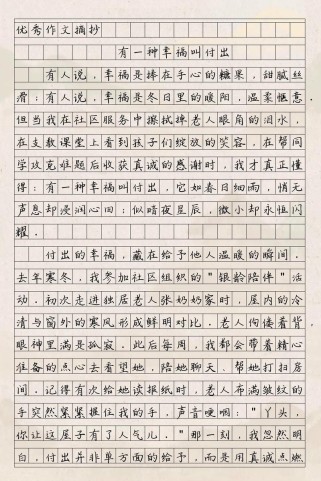 优秀作文摘抄
有一种幸福叫付出
有人说，幸福是捧在手心的糖果，甜腻丝
滑；有人说，幸福是冬日里的暖阳，温柔惬意。
但当我在社区服务中擦拭掉老人眼角的泪水，
在支教课堂上看到孩子们绽放的笑容，在帮同
学攻克难题后收获真诚的感谢时，我才真正懂
得：有一种幸福叫付出，它如春日细雨，悄无
声息却浸润心田；似暗夜星辰，微小却永恒闪
耀。
付出的幸福，藏在给予他人温暖的瞬间。
去年寒冬，我参加社区组织的“银龄陪伴”活
动。初次走进独居老人张奶奶家时，屋内的冷
清与窗外的寒风形成鲜明对比，老人佝偻着背，
眼神里满是孤寂。此后每周，我都会带着精心
准备的点心去看望她，陪她聊天，帮她打扫房
间。记得有次给她读报纸时，老人布满皱纹的
手突然紧紧握住我的手，声音哽咽：“丫头，
你让这屋子有了人气儿。”那一刻，我忽然明
白，付出并非单方面的给予，而是用真诚点燃